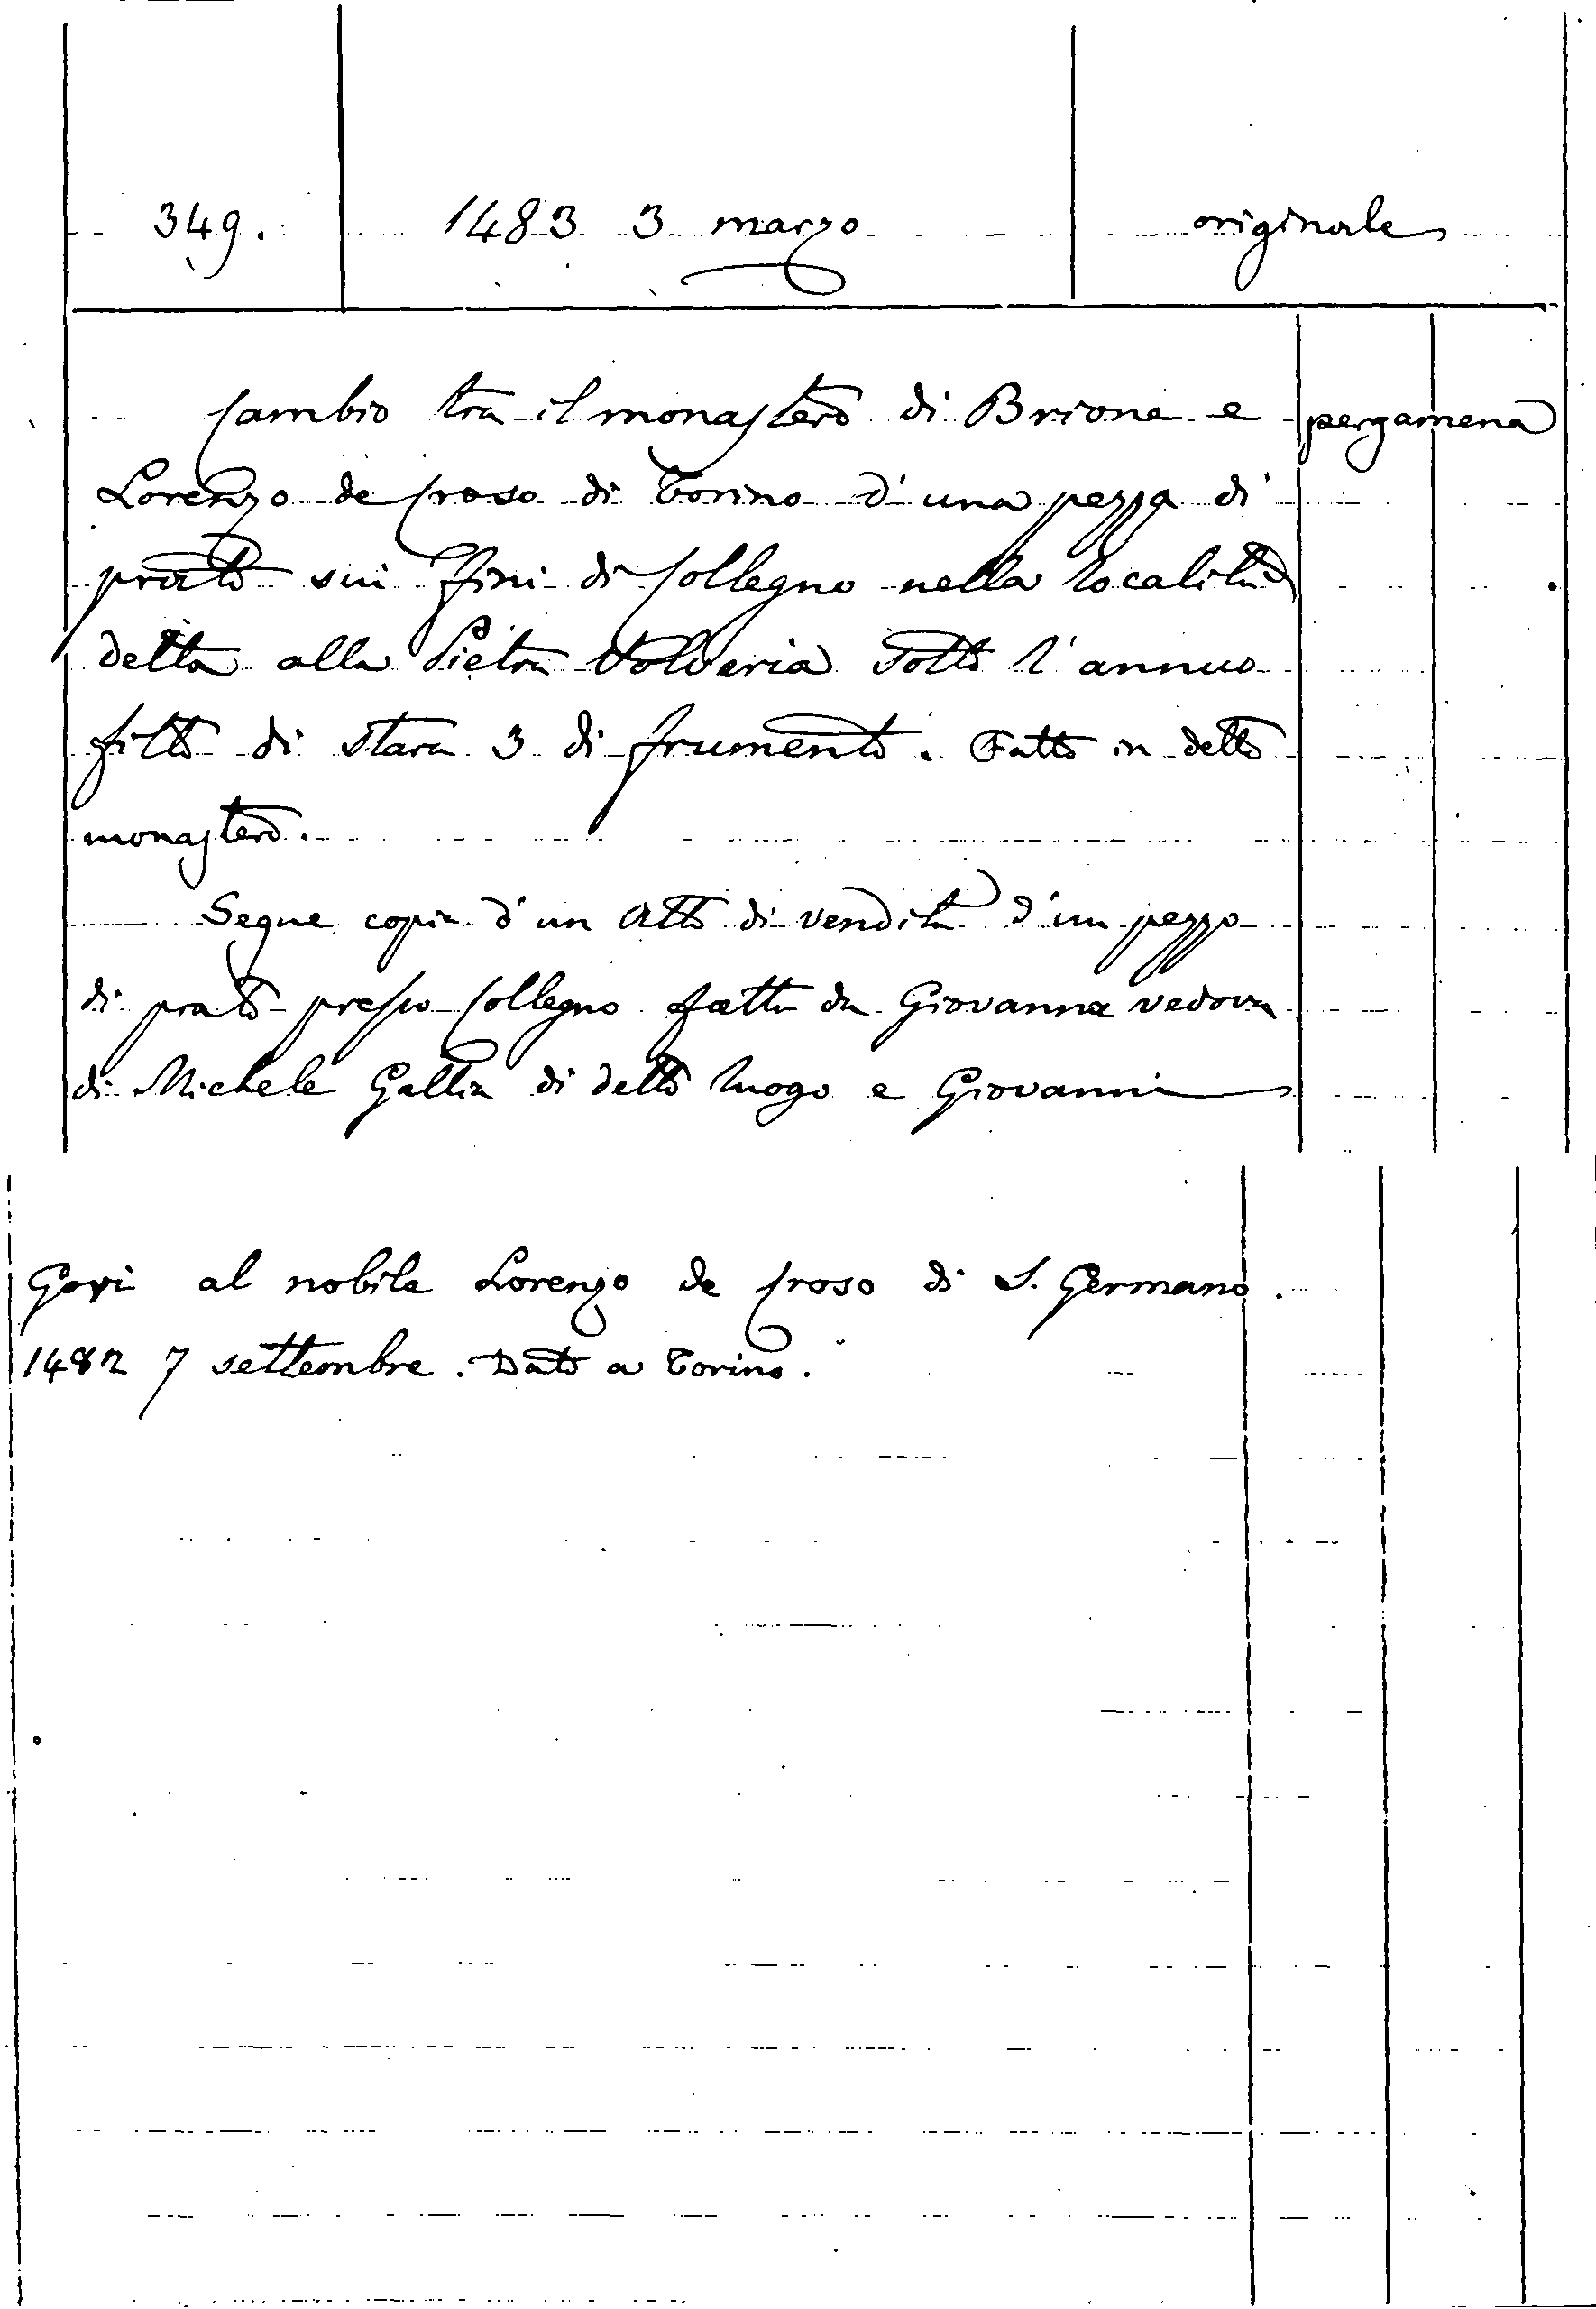 349. 1483 3 marzo originale
Cambio tra il monastero di Brione e pergamena
Lorenzo de Croso di Torino d'una pezza di
prato sui fini di Collegno nella località
detta alla Pietra Volveria sotto l'annuo
fitto di stara 3 di frumento. Fatto in detto
monastero.
Segue copia d'un atto di vendita d'un pezzo
di prato presso Collegno fatta da Giovanna vedova
di Michele Gallia di detto luogo e Giovanni
al nobile Lorenzo de Croso di S. Germano.
1482 7 settembre. Dato a Torino.